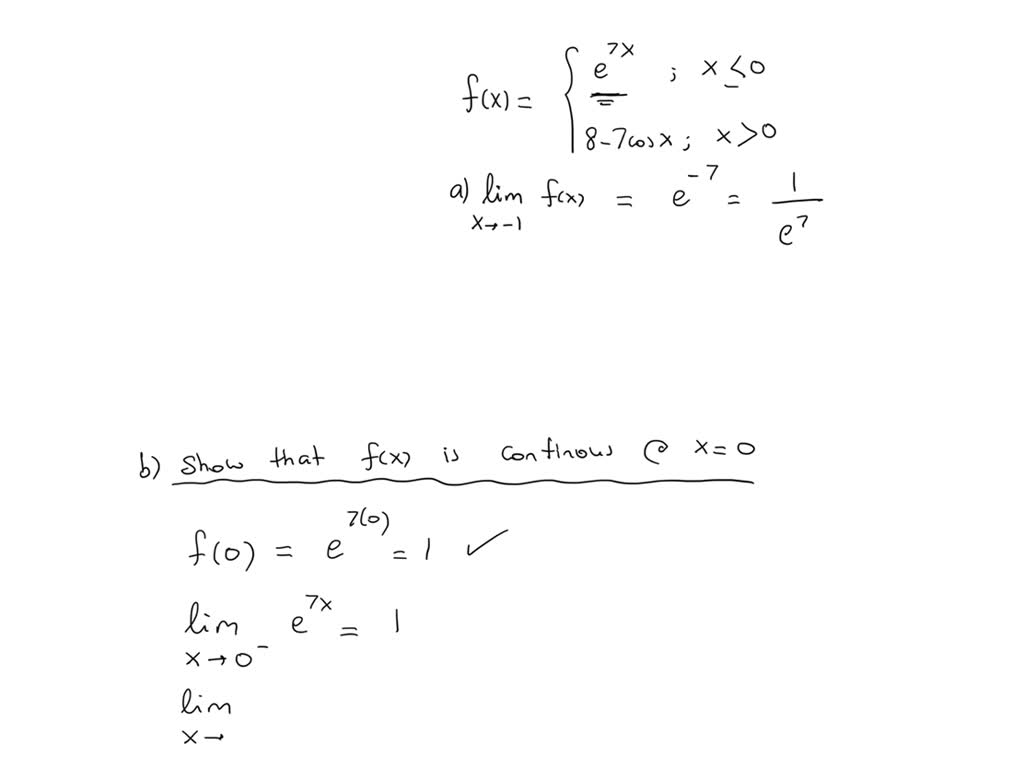 f(x) = { e^{7x} ; x ≤ 0
8-7cosx ; x > 0
a) lim_{x→-1} f(x) = e^{-7} = 1/e^7
b) Show that f(x) is continous @ x=0
f(0) = e^{7(0)} = 1 ✓
lim_{x→0^-} e^{7x} = 1
lim_{x→}